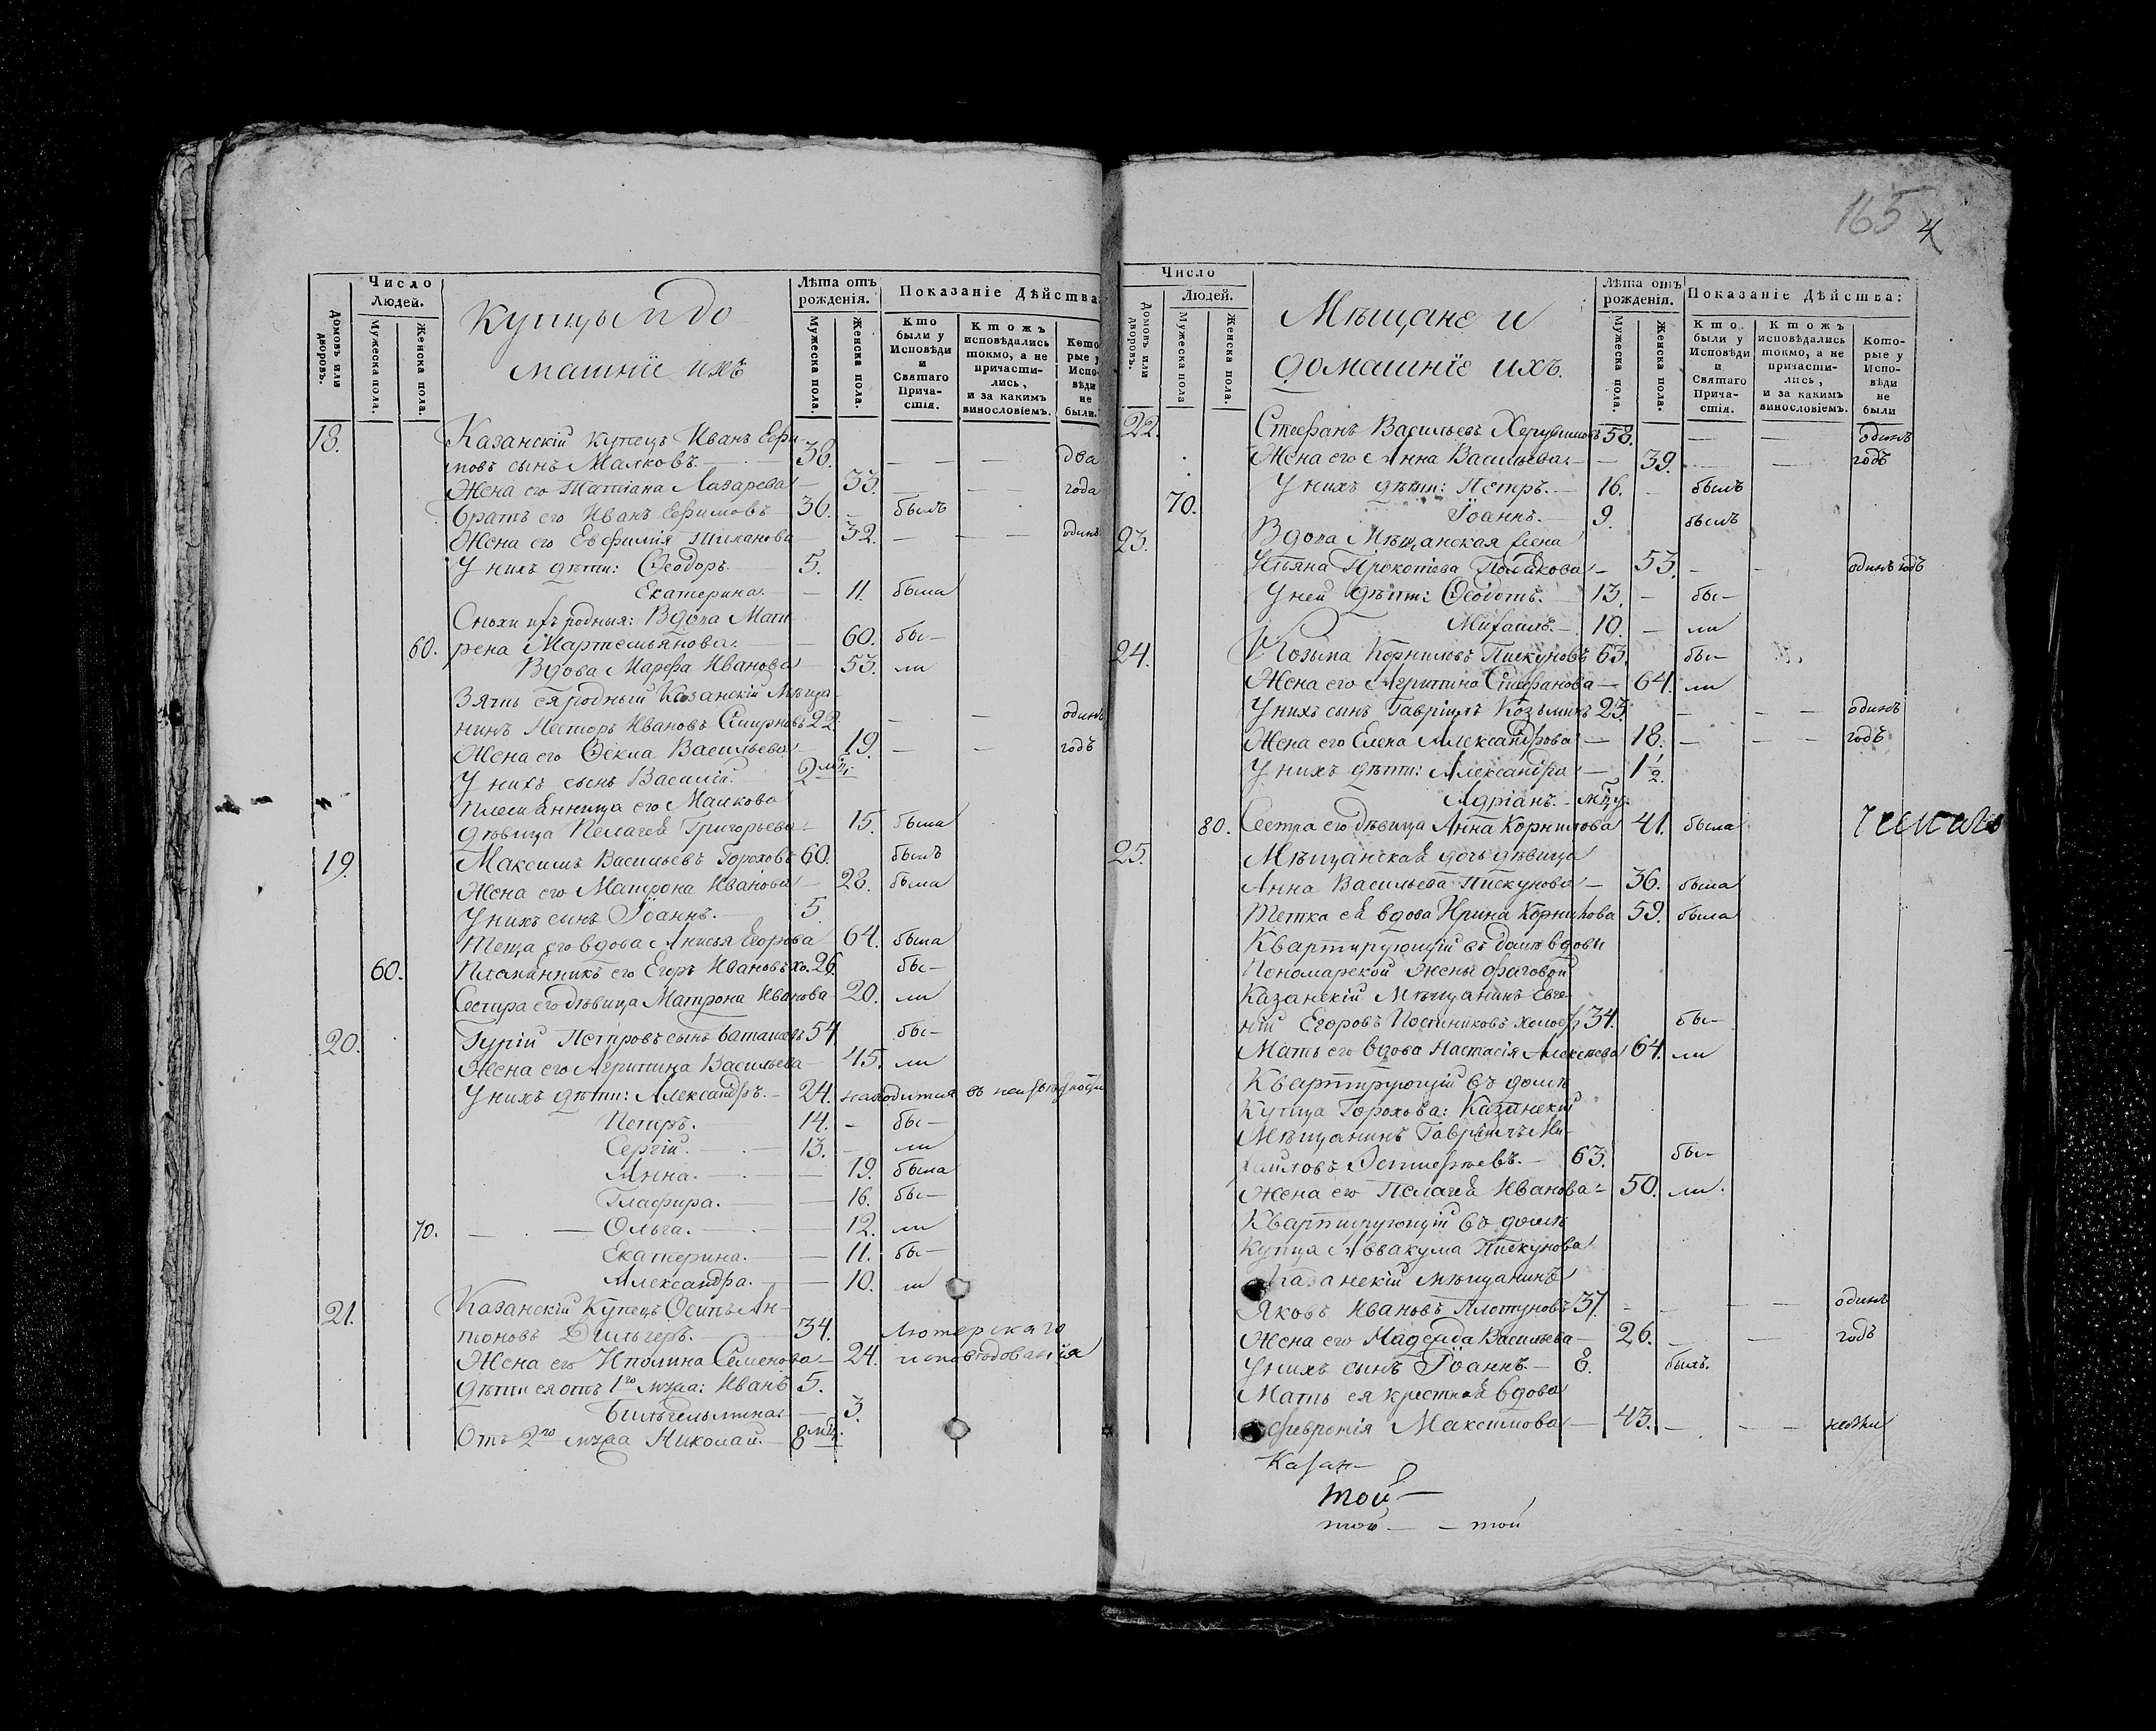 Число
Людей.
Домовъ или дворовъ.
Мужеска пола.
Женска пола.
Купцы и до
машніе ихъ
Лѣта отъ рожденія.
Мужеска пола.
Женска пола.
Показаніе Дѣйства:
Кто были у Исповѣди и Святаго Прича-стія.
Ктожъ исповѣдались токмо, а не причасти-лись, и за какимъ винословіемъ.
Кото рые у Испо-вѣди не были.
18. Казанскій купецъ Иванъ Ефи
мовъ сынъ Малковъ. — 38. — — — два
Жена его Татіана Лазарева — 33. — — года
братъ его Иванъ Ефимовъ — 36. — былъ
Жена его Евфимія — 32. — — — одинъ
У нихъ дѣти: Ѳеодоръ. 5.
Екатерина. — 11. была
Снохи ихъ родныя: Вдова Мат
60. рена Мартемьянова. — 60. бы-
Вдова Марфа Иванова 53. ли
Зять ея родный Казанскій Мѣща-
нинъ Несторъ Ивановъ Смирновъ 22. — — одинъ
Жена его Ѳекла Васильева — 19. — — годъ
У нихъ сынъ Василій. 2 мѣс.
Племянница его Малкова
дѣвица Пелагея Григорьева — 15. была
19. Максимъ Васильевъ Гороховъ 60. былъ
Жена его Матрона Иванова — 28. была
У нихъ сынъ Іоаннъ. 5.
Теща его вдова Анисья Егорова 64. была
60. Племянникъ его Егоръ Ивановъ хо. 26. бы-
Сестра его дѣвица Матрона Иванова 20. ли
20. Гурій Петровъ сынъ Баташевъ 54. бы-
Жена его Агрипина Васильева 45. ли
У нихъ дѣти: Александръ. — 24. находится въ неизвѣстности
Петръ. — 14. — бы-
Сергій. — 13. — ли
Анна. — — 19. была
Глафира. — — 16. бы-
70. — — Ольга. — — 12. ли
Екатерина. — 11. бы-
Александра. — — 10. ли
21. Казанскій Купецъ Осипъ Ан-
тоновъ — 34. Лютерскаго
Жена его Семенова — 24. исповѣдованія
Дѣти ея отъ 1го мужа: Иванъ 5.
Вильгельмина — 3.
Отъ 2го мужа Николай. — 8 мѣс.
165 4
Число
Людей.
Домовъ или дворовъ.
Мужеска пола
Женска пола.
Мѣщане и
домашніе ихъ.
Лѣта отъ рожденія.
Мужеска пола.
Женска пола.
Показаніе Дѣйства:
Кто были у Исповѣди и Святаго Прича-стія.
Ктожъ исповѣдались токмо, а не причасти-лись, и за какимъ винословіемъ.
Кото-рые у Испо-вѣди не были
22. Стефанъ Васильевъ Херувимовъ 58. — — одинъ
Жена его Анна Васильева — — 39. — — годъ
У нихъ дѣти: Петръ. — 16. — былъ
70. Іоаннъ. — 9. былъ
23. Вдова Мѣщанская жена
Ульяна Прокопіева Полякова — 53. — — одинъ годъ
У ней дѣти: Ѳеодотъ. — 13. — бы-
Михаилъ. — 10. — ли
24. Козьма Корниловъ Пискуновъ 63. бы-
Жена его Агрипина Стефанова — 64. ли
У нихъ сынъ Гавріилъ Козьминъ 23. — — одинъ
Жена его Елена Александрова — 18. — — — годъ
У нихъ дѣти: Александра — 1½.
Адріанъ.
80. Сестра его дѣвица Анна Корнилова 41. была
25. Мѣщанская дочь дѣвица
Анна Васильева Пискунова — 36. была
Тетка ея вдова Ирина Корнилова 59. была
Квартирующій въ домѣ вдовы
Пономарской жены
Казанскій Мѣщанинъ Евге-
ній Егоровъ Постниковъ холост 34. бы-
Мать его вдова Настасія Алексѣева 64. ли
Квартирующій въ домѣ
Купца Горохова: Казанскій
Мѣщанинъ Гавріилъ Ми-
хайловъ — 63. бы-
Жена его Пелагея Иванова — 50. ли.
Квартирующій въ домѣ
Купца Аввакума Пискунова
Казанскій мѣщанинъ
Яковъ Ивановъ Плотуновъ 37. — — — одинъ
Жена его Надежда Васильева — 26. — — годъ
У нихъ сынъ Іоаннъ. — 8. былъ.
Мать ея крестная вдова
Февронія Максимова — 43. — — —
Казан-
той —
той — — той